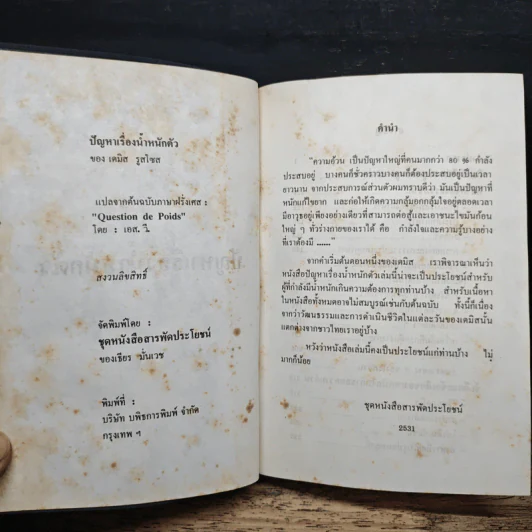 ปัญหาเรื่องน้ำหนักตัว
ของ เดมิส รูสโซส
แปลจากต้นฉบับภาษาฝรั่งเศส :
"Question de Poids"
โดย : เอส. วี.
สงวนลิขสิทธิ์
จัดพิมพ์โดย :
ชุดหนังสือสารพัดประโยชน์
ของเธียร มั่นเวช
พิมพ์ที่ :
บริษัท บพิธการพิมพ์ จำกัด
กรุงเทพ ฯ
คำนำ
"ความอ้วน เป็นปัญหาใหญ่ที่คนมากกว่า 80 % กำลัง
ประสบอยู่ บางคนก็ชั่วคราวบางคนก็ต้องประสบอยู่เป็นเวลา
ยาวนาน จากประสบการณ์ส่วนตัวผมทราบดีว่า มันเป็นปัญหาที่
หนักแก้ไขยาก และก่อให้เกิดความกลุ้มอกกลุ้มใจอยู่ตลอดเวลา
มีอาวุธอยู่เพียงอย่างเดียวที่สามารถต่อสู้และเอาชนะไขมันก้อน
ใหญ่ ๆ ทั่วร่างกายของเราได้ คือ กำลังใจและความรู้บางอย่าง
ที่เราต้องมี ......"
จากคำเริ่มต้นตอนหนึ่งของเดมิส เราพิจารณาเห็นว่า
หนังสือปัญหาเรื่องน้ำหนักตัวเล่มนี้น่าจะเป็นประโยชน์สำหรับ
ผู้ที่กำลังมีน้ำหนักเกินความต้องการทุกท่านบ้าง สำหรับเนื้อหา
ในหนังสือทั้งหมดอาจไม่สมบูรณ์เช่นกับต้นฉบับ ทั้งนี้ก็เนื่อง
จากวัฒนธรรมและการดำเนินชีวิตในแต่ละวันของเดมิสนั้น
แตกต่างจากชาวไทยเราอยู่บ้าง
หวังว่าหนังสือเล่มนี้คงเป็นประโยชน์แก่ท่านบ้าง ไม่
มากก็น้อย
ชุดหนังสือสารพัดประโยชน์
2531